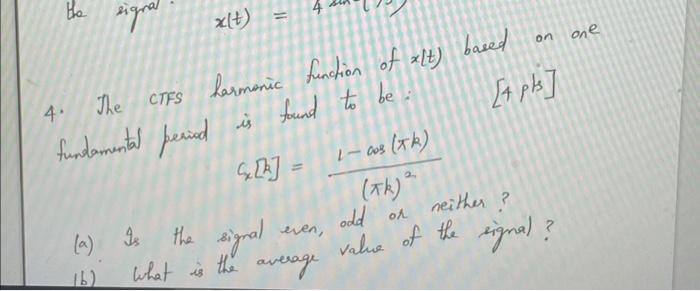 the signal.
x(t) = 4
4. The CTFS harmonic function of x(t) based on one
fundamental period is found to be : [4 pts]
Cx[k] = 1 - cos(πk) / (πk)²
(a) Is the signal even, odd or neither ?
(b) What is the average value of the signal ?